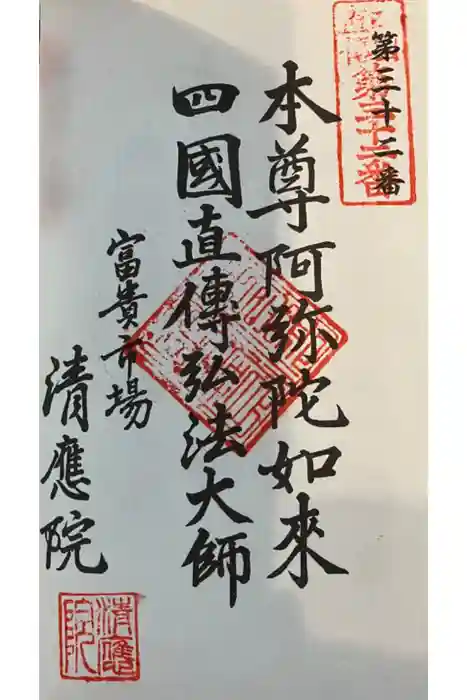 第三十二番
本尊阿弥陀如來
四國直傳弘法大師
富貴市場
清應院
清應院